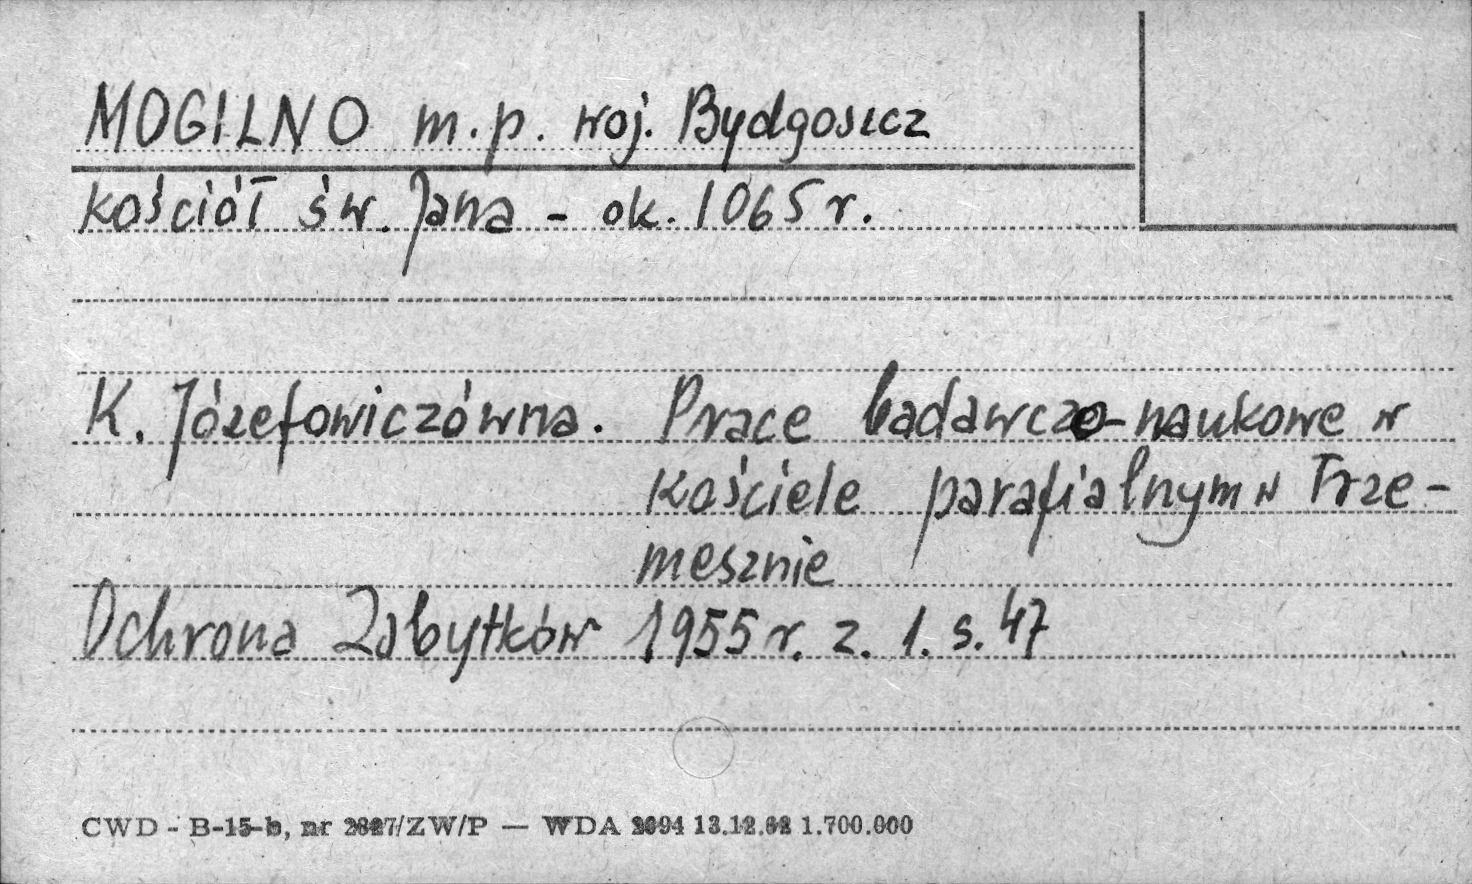 MOGILNO m.p. woj. Bydgoszcz
kościół św. Jana - ok. 1065 r.
K. Józefowiczówna. Prace badawczo-naukowe w
kościele parafialnym w Trze-
mesznie
Ochrona Zabytków 1955 r. z. 1. s. 47
CWD - B-15-b, nr 2827/ZW/P — WDA 2094 13.12.62 1.700.000